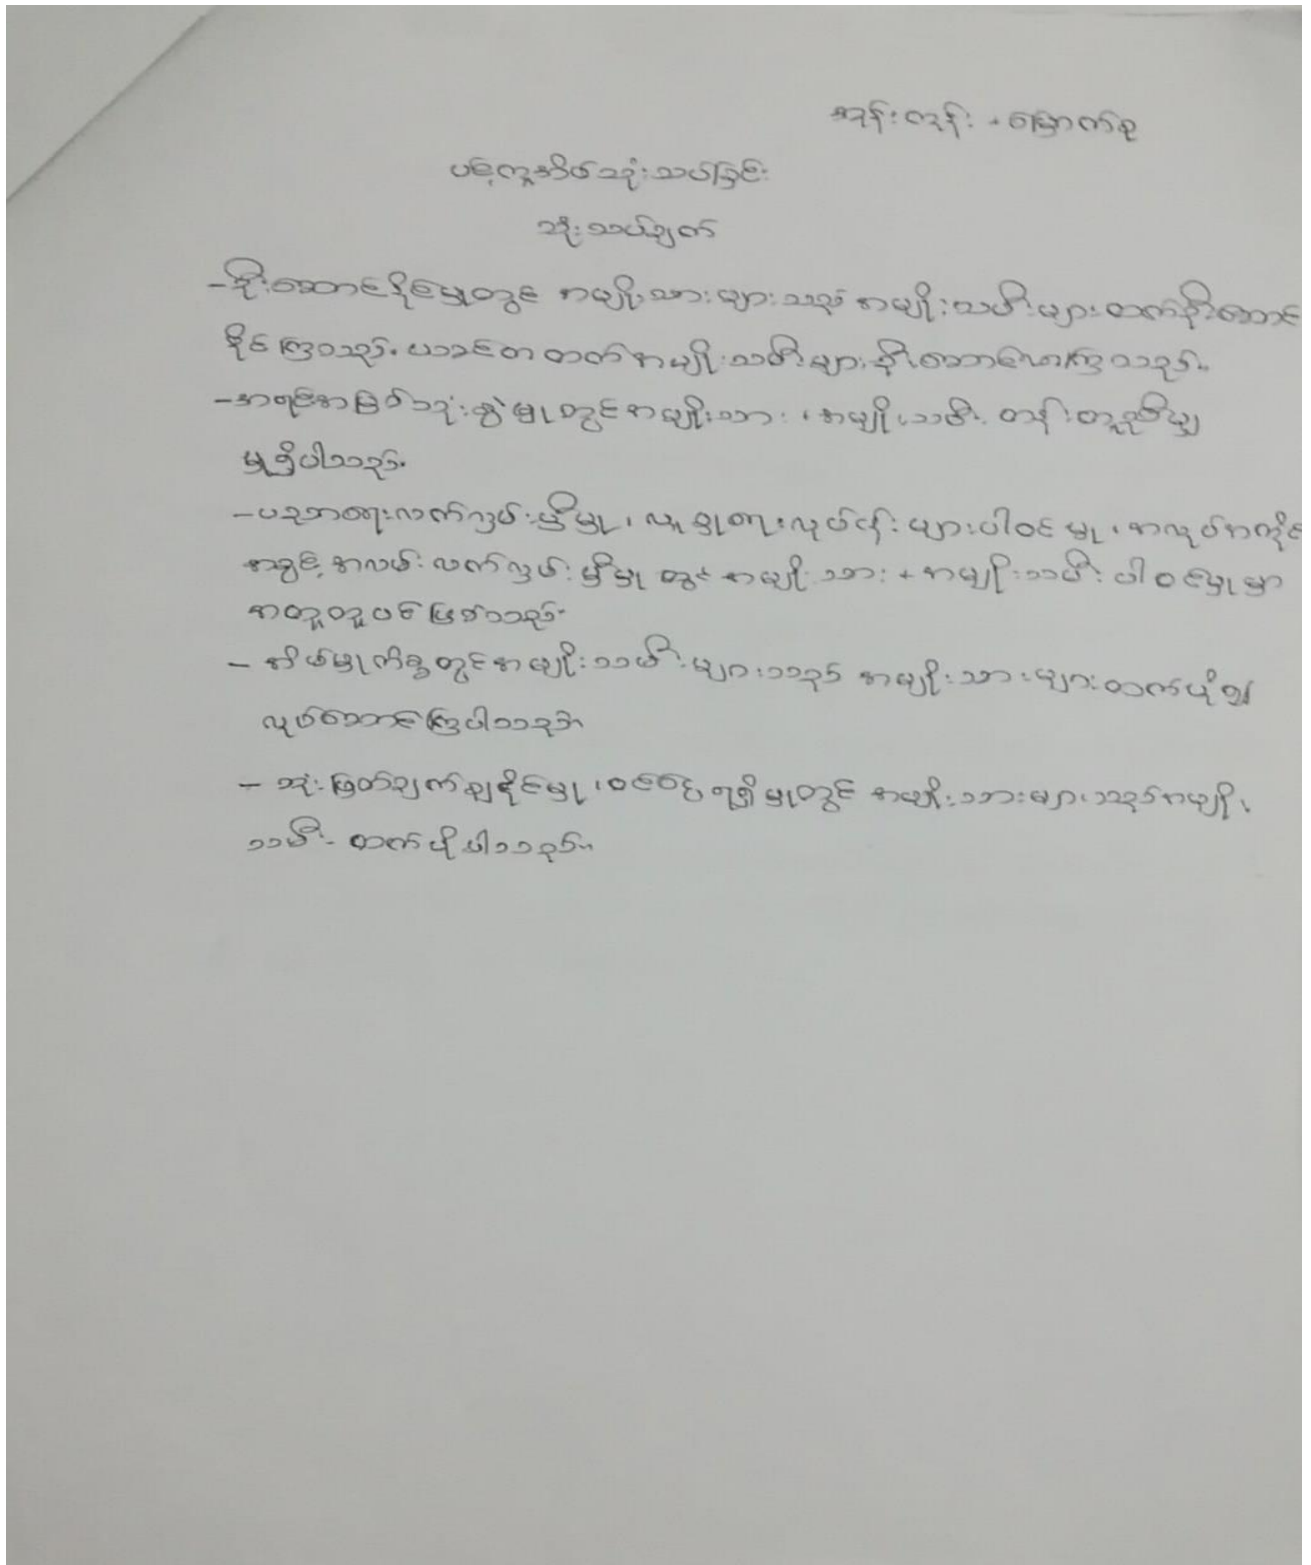 ကုန်း + မြောက်စု
ပင့်ကူအိမ်သုံးသပ်ခြင်း
သုံးသပ်ချက်
-ဦးဆောင်နိုင်မှုတွင် အမျိုးသားများသည် အမျိုးသမီးများထက်ဦးဆောင်
နိုင်ကြသည်။ ယခင်ကထက်အမျိုးသမီးများဦးဆောင်လာကြသည်။
-အရင်းအမြစ်သုံးစွဲမှုတွင်အမျိုးသား၊ အမျိုးသမီး တန်းတူညီမျှ
မှုရှိပါသည်။
-ပညာရေးလက်လှမ်းမှီမှု၊ လူမှုရေးလုပ်ငန်းများပါဝင်မှု၊ အလုပ်အကိုင်
အခွင့်အလမ်းလက်လှမ်းမှီမှုတွင် အမျိုးသား + အမျိုးသမီးပါဝင်မှုမှာ
အတူတူပင်ဖြစ်သည်။
- အိမ်မှုကိစ္စတွင်အမျိုးသမီးများသည် အမျိုးသားများထက်ပို၍
လုပ်ဆောင်ကြပါသည်။
- ဆုံးဖြတ်ချက်ချနိုင်မှု၊ ဝင်ငွေရရှိမှုတွင် အမျိုးသားများသည်အမျိုး
သမီးထက်ပိုပါသည်။